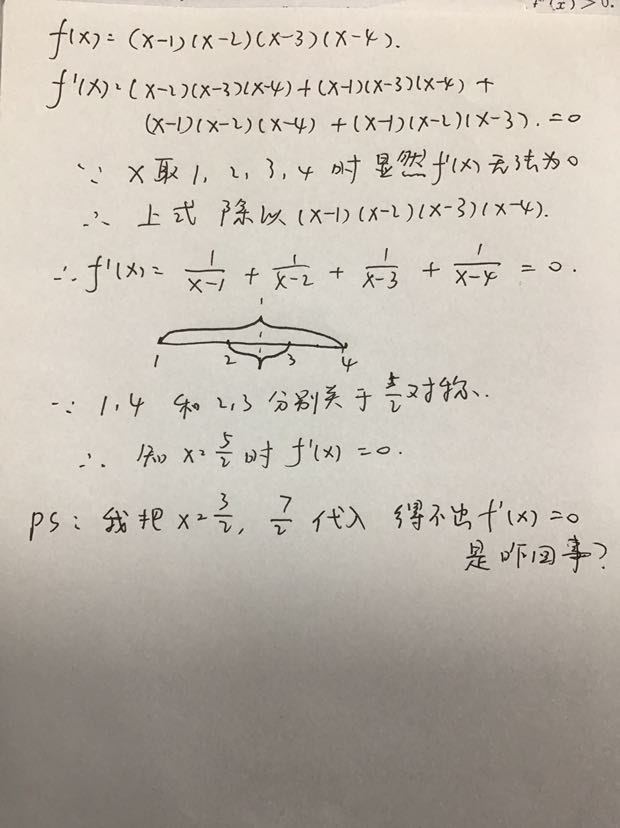 f'(x) > 0.
f(x) = (x-1)(x-2)(x-3)(x-4).
f'(x) = (x-2)(x-3)(x-4) + (x-1)(x-3)(x-4) +
(x-1)(x-2)(x-4) + (x-1)(x-2)(x-3). = 0
∵ x取1, 2, 3, 4时显然f'(x)无法为0
∴ 上式 除以(x-1)(x-2)(x-3)(x-4).
∴ f'(x) = 1/(x-1) + 1/(x-2) + 1/(x-3) + 1/(x-4) = 0.
1 2 3 4
∵ 1,4 和 2,3 分别关于 5/2 对称.
∴ 知 x = 5/2 时 f'(x) = 0.
PS: 我把 x = 3/2, 7/2 代入 得不出 f'(x) = 0
是咋回事?